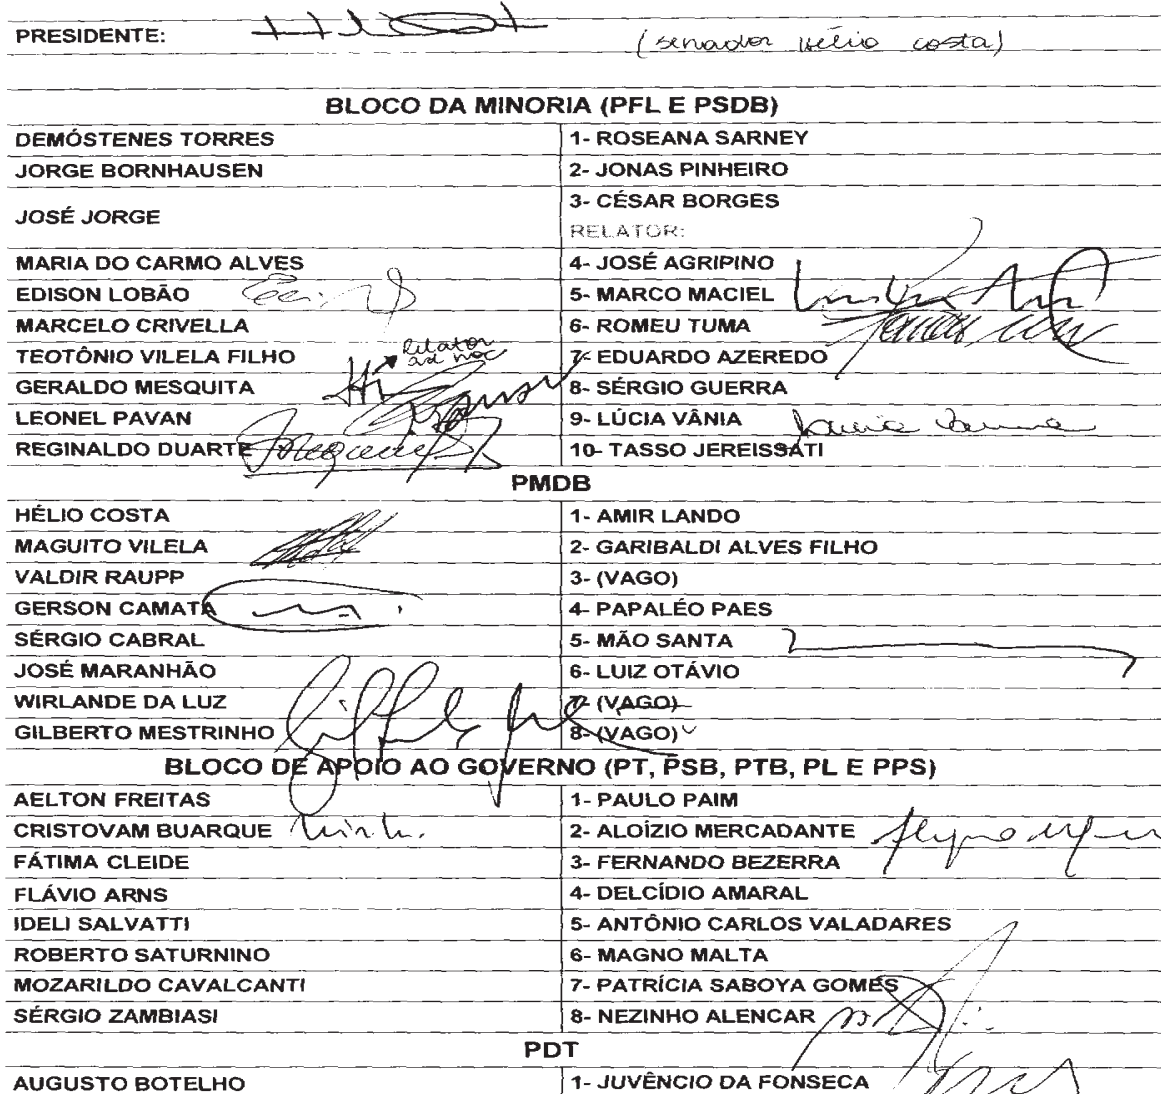 PRESIDENTE: (senador Hélio costa)
BLOCO DA MINORIA (PFL E PSDB)
DEMÓSTENES TORRES 1- ROSEANA SARNEY
JORGE BORNHAUSEN 2- JONAS PINHEIRO
JOSÉ JORGE 3- CÉSAR BORGES
RELATOR:
MARIA DO CARMO ALVES 4- JOSÉ AGRIPINO
EDISON LOBÃO 5- MARCO MACIEL
MARCELO CRIVELLA 6- ROMEU TUMA
TEOTÔNIO VILELA FILHO Relator ad hoc 7- EDUARDO AZEREDO
GERALDO MESQUITA 8- SÉRGIO GUERRA
LEONEL PAVAN 9- LÚCIA VÂNIA
REGINALDO DUARTE 10- TASSO JEREISSATI
PMDB
HÉLIO COSTA 1- AMIR LANDO
MAGUITO VILELA 2- GARIBALDI ALVES FILHO
VALDIR RAUPP 3- (VAGO)
GERSON CAMATA 4- PAPALÉO PAES
SÉRGIO CABRAL 5- MÃO SANTA
JOSÉ MARANHÃO 6- LUIZ OTÁVIO
WIRLANDE DA LUZ 7- (VAGO)
GILBERTO MESTRINHO 8- (VAGO)
BLOCO DE APOIO AO GOVERNO (PT, PSB, PTB, PL E PPS)
AELTON FREITAS 1- PAULO PAIM
CRISTOVAM BUARQUE 2- ALOÍZIO MERCADANTE
FÁTIMA CLEIDE 3- FERNANDO BEZERRA
FLÁVIO ARNS 4- DELCÍDIO AMARAL
IDELI SALVATTI 5- ANTÔNIO CARLOS VALADARES
ROBERTO SATURNINO 6- MAGNO MALTA
MOZARILDO CAVALCANTI 7- PATRÍCIA SABOYA GOMES
SÉRGIO ZAMBIASI 8- NEZINHO ALENCAR
PDT
AUGUSTO BOTELHO 1- JUVÊNCIO DA FONSECA